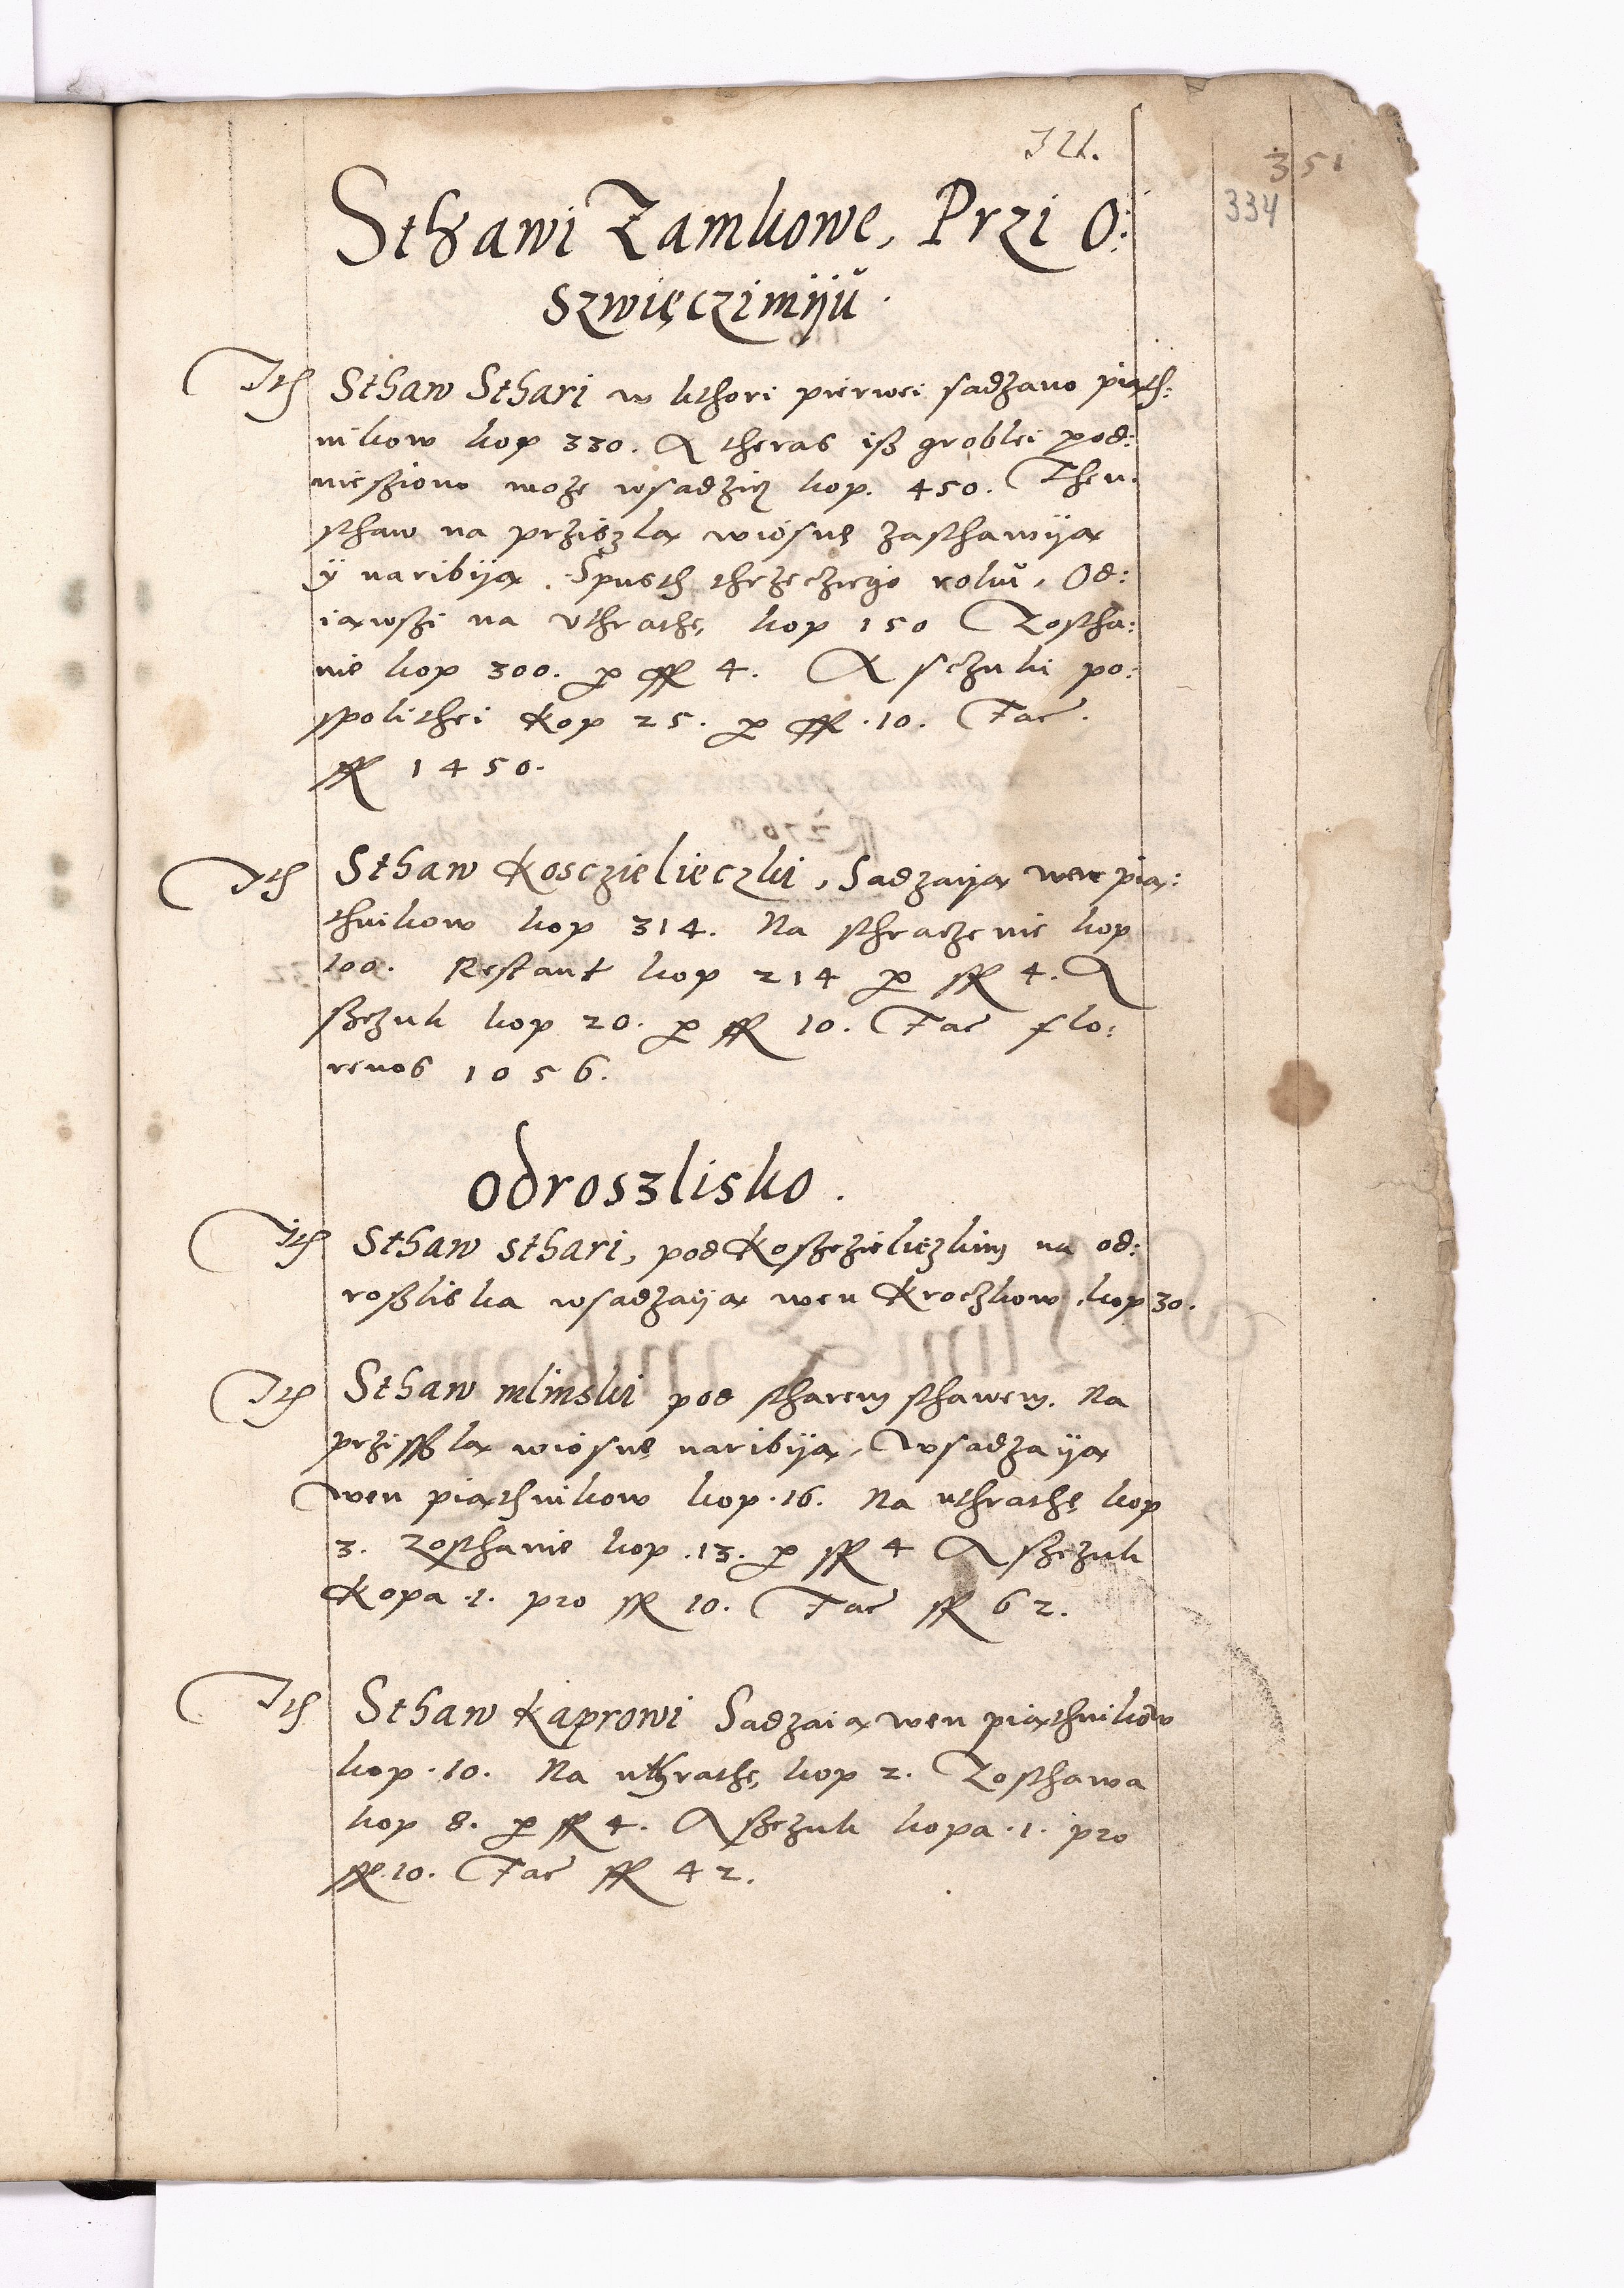 321.
351
334
Sthawi Zamkowe, Przi O:
szwięczimiju.
Ith Sthaw Sthari w kthori pierwei sadzano piąth:
nikow kop 330. A theras iß groblei pod:
niesziono może wsadzicz kop. 450. Then.
sthaw na przislą wiosnę zasthawiją
ÿ naribiją. Spusth thrzecziego roku, Od:
iąwszi na uthrathę, kop 150 Zostha:
nie kop 300. per fl 4. A sczuki po:
spolithei kop 25. per fl .10. Fac.
fl 1450.
Ith Sthaw Kosczielieczki, Sadzaiją wen pią:
thnikow kop 314. Na sthraczenie kop
100. Restant kop 214 per fl 4. A
sczuk kop 20. per fl 10. Fac flo:
renos 1056.
Odroszlisko.
Ith Sthaw sthari, pod Koßczieliczkim na od:
roßliska wsadzaiją wen Kroczkow kop 30.
Ith Sthaw mlinski pod stharem sthawem. Na
prziszlą wiosnę naribiją, wsadzaiją
wen piąthnikow kop .16. Na uthrathę kop
3. Zosthanie kop .13. per fl 4 A sczuk
Kopa .1. pro fl 10. Fac fl 62.
Ith Sthaw Kaprowi Sadzaią wen piąthnikow
kop .10. Na uthrathę, kop 2. Zosthawa
kop 8. per fl 4. A sczuk kopa .1. pro
fl .10. Fac fl 42.